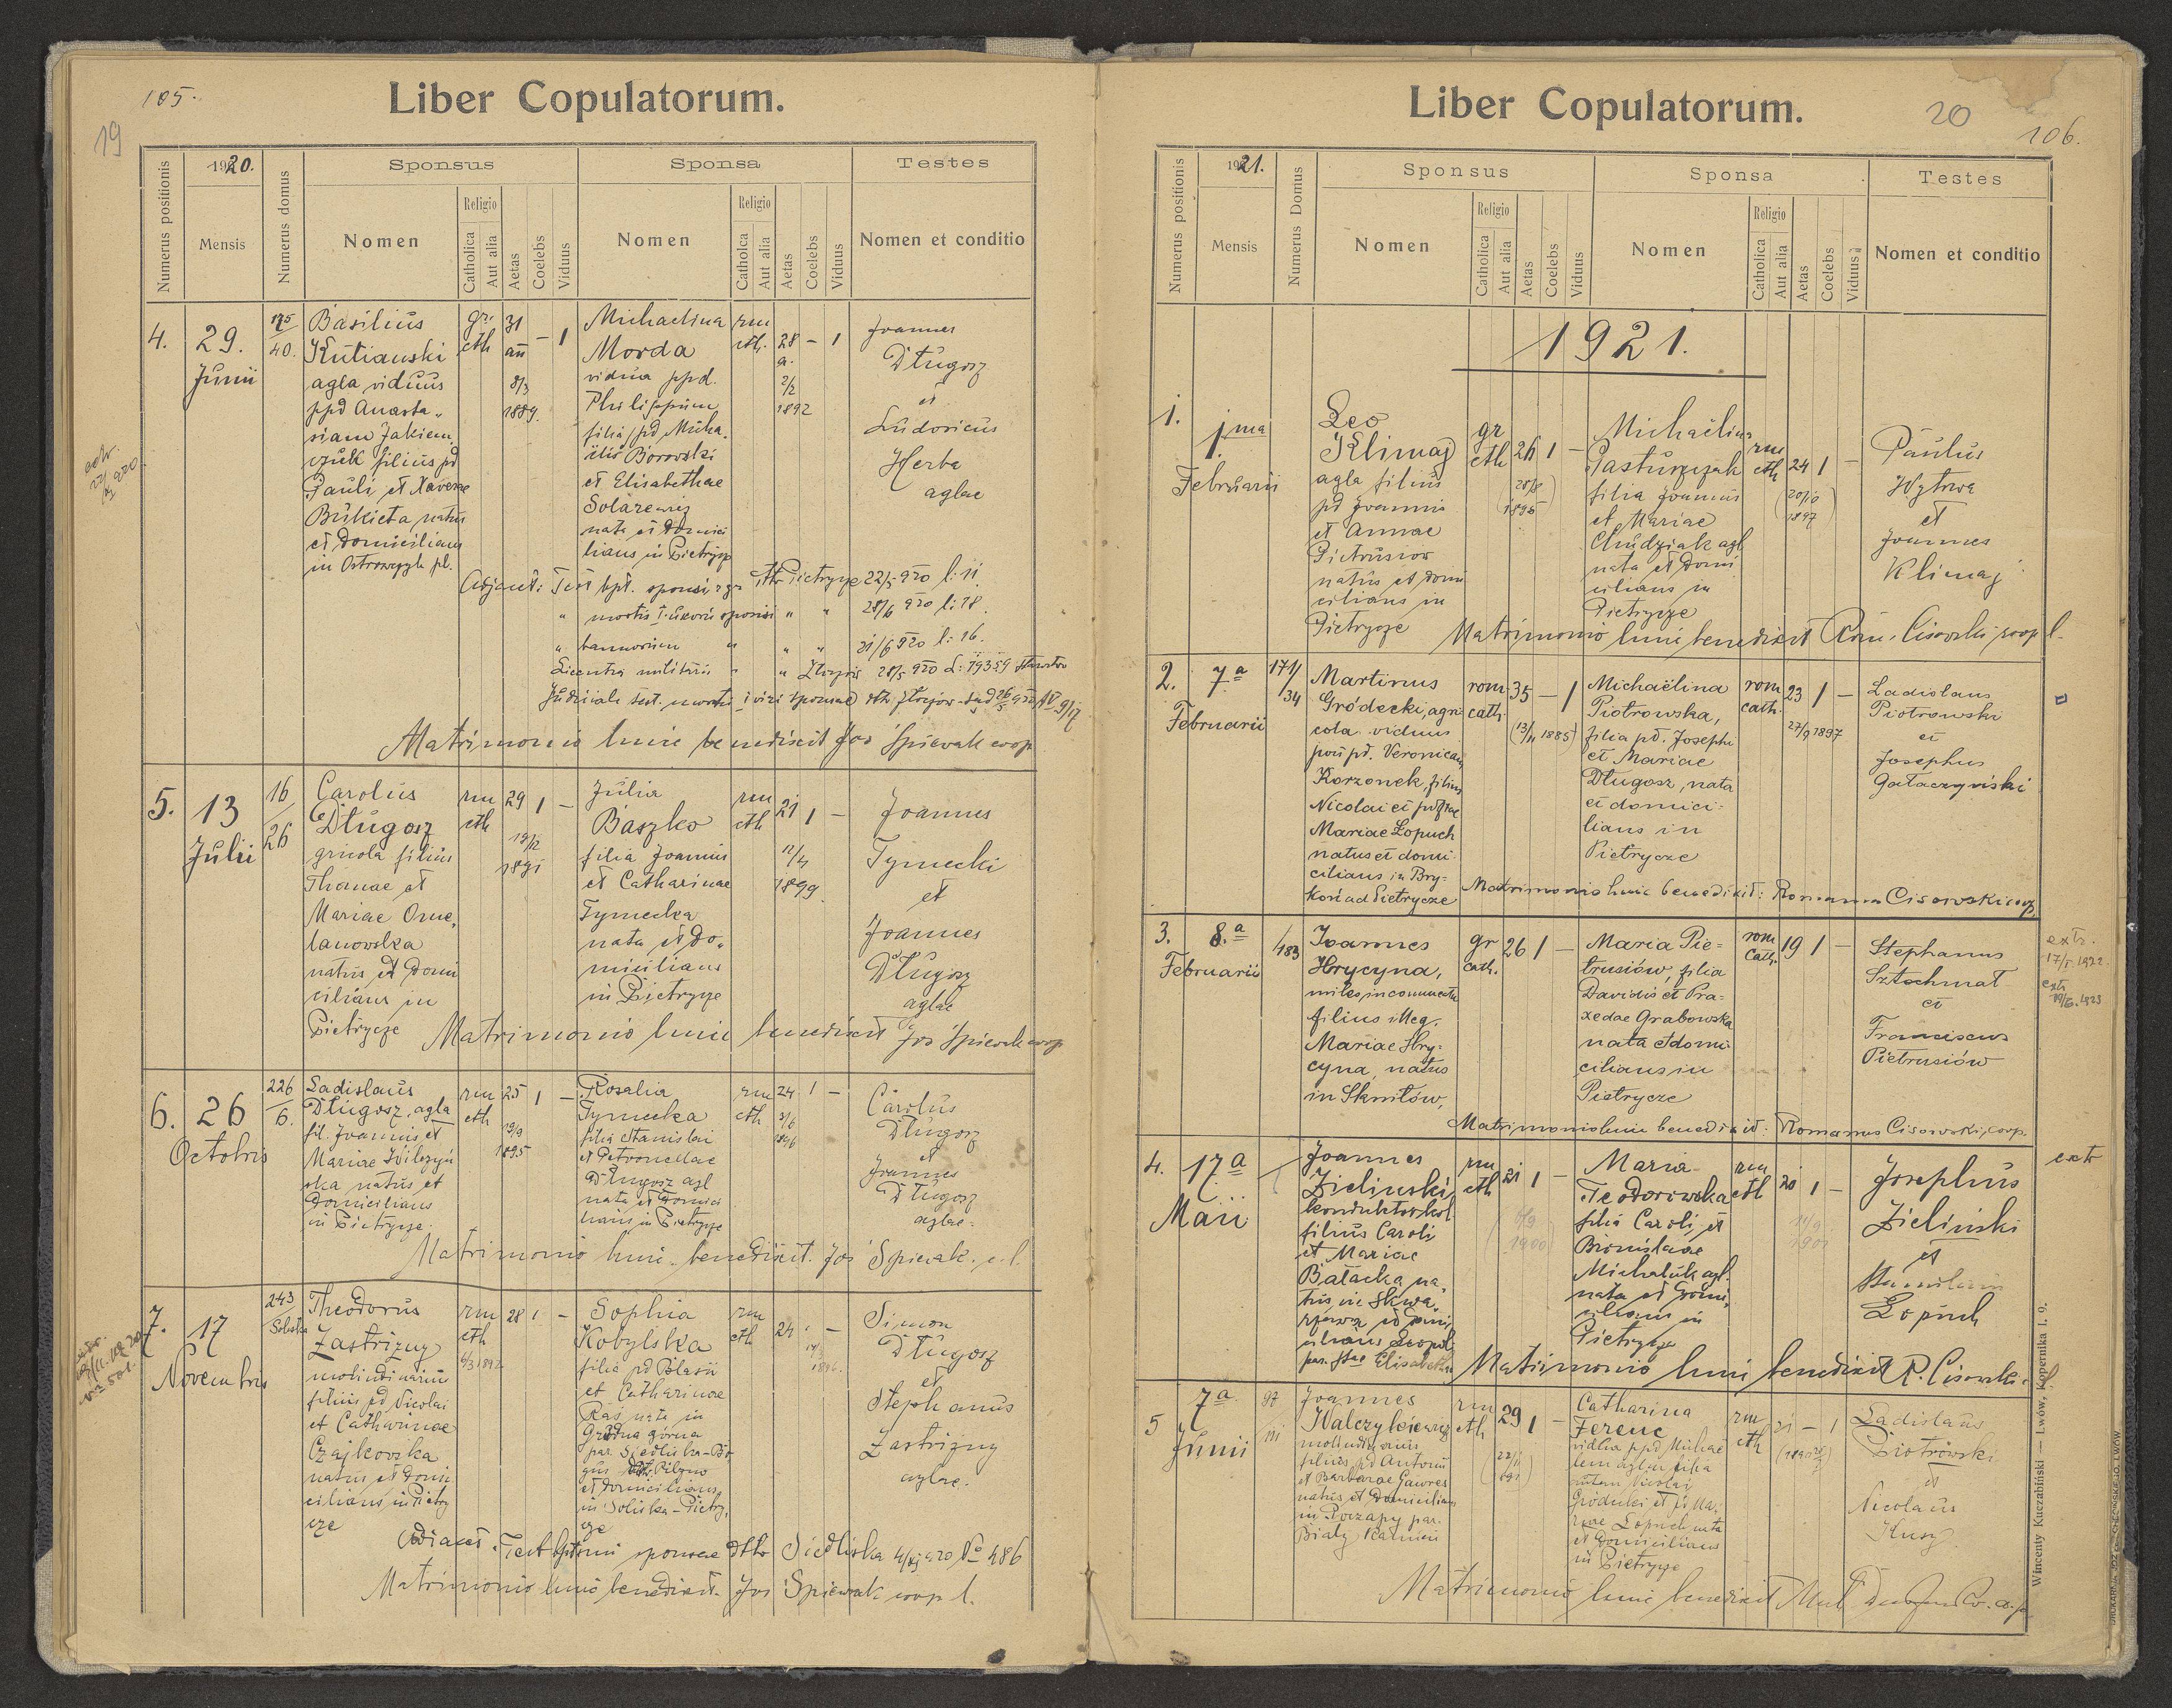 105.
19
Liber Copulatorum.
Numerus positionis
1920.
Mensis
Numerus domus
Sponsus
Nomen
Religio
Catholica
Aut alia
Aetas
Coelebs
Viduus
Sponsa
Nomen
Religio
Catholica
Aut alia
Aetas
Coelebs
Viduus
Testes
Nomen et conditio
4.
29.
Junii
175
40.
Basilius
Kutianski
agla viduus
ppd Anasta„
siam Jakiem„
czuk filius pd
Pauli et Xaverae
Bukieta natus
et domicilians
in
gr.
cth
31
an
8/3
1889.
–
1
Michaelina
Morda
vidua ppd.
Philippum
filia pd Micha„
elis Borowski
et Elisabethae
Solarewicz
nata et domici
lians in Pietrycze
rm
cth.
28
a.
2/2
1892
–
1
Joannes
Długosz
et
Ludovicus
Herba
aglae
Adjacet: Test bpt. sponsi Pietrycze 22/5 920 l: 11
„ mortis I. uxoris sponsi „ „ 28/6 920 l: 18.
„ bannorum „ „ „ 21/6 920 l: 16.
Licentia militaris „ „ 28/5 920 L: 19359
Matrimonio huic benedixit Jos Śpiewak coop
5.
13
Julii
16
26
Carolus
Długosz
gricola filius
Thomae et
Mariae Ome„
lanowska
natus et domi
cilians in
Pietrycze
rm
cth
29
19/12
1891
1
–
Julia
Baszko
filia Joannis
et Catharinae
Tymecka
nata et do„
micilians
in Pietrycze
rm
cth
21
12/4
1899
1
–
Joannes
Tymecki
et
Joannes
Długosz
aglae
Matrimonio huic benedixit Jos Śpiewak coop
6.
26
Octobris
226
6.
Ladislaus
Długosz, agla
fil. Joannis et
Mariae Wilczyń
ska natus et
domicilians
in Pietrycze.
rm
cth
25
19/9
1895
1
–
Rosalia
Tymecka
filia Stanislai
et Petronellae
Długosz agl
nata et domici
lians in Pietrycze
rm
cth
24
3/6
1896
1
–
Carolus
Długosz
et
Joannes
Długosz
aglae.
Matrimonio huic benedixit. Jos Śpiewak. c. l.
7.
17
Novembris
243
Theodorus
Zastrizny
filius pd Nicolai
et Catharinae
Czajkowska
natus et domi
cilians in Pietry
cze
rm
cth
6/3 1892
28
1
–
Sophia
Kobylska
filia pd Blasii
et Catharinae
Raś nata in
Gródna górna
par. Siedliska-Bo
gus Pilzno
et domicilians
in Soliska-Pietry„
cze
rm
cth
24
1896.
–
Simon
Długosz
et
Stephanus
Zastrizny
aglae.
Adiacet. Test bptismi sponsae dtto Siedliska 4/XI 920 No 486
Matrimonio huic benedixit. Jos Śpiewak coop l.
Liber Copulatorum.
20
106.
Numerus positionis
1921.
Mensis
Numerus Domus
Sponsus
Nomen
Religio
Catholica
Aut alia
Aetas
Coelebs
Viduus
Sponsa
Nomen
Religio
Catholica
Aut alia
Aetas
Coelebs
Viduus
Testes
Nomen et conditio
1921.
1.
1ma
Februarii
Leo
Klimaj
agla filius
pd Joannis
et Annae
Pietrusiow
natus et domi
cilians in
Pietrycze
gr
cth
26
(20/8
1895)
1
–
Michaëlina
Pasturczak
filia Joannis
et Mariae
Chudziak agl
nata et domi
cilians in
Pietrycze
rm
cth
24
(20/10
1897)
1
–
Paulus
Wytrwa
et
Joannes
Klimaj
Matrimonio huic benedixit Rom. Cisowski coop l.
2.
7a
Februarii
171/
34
Martinus
Gródecki, agri
cola viduus
post pd. Veronicam
Korzonek, filius
Nicolai et pdfnae
Mariae Łopuch
natus et domi
cilians in Bry=
koń ad Pietrycze
rom
cath.
35
(13/11 1885)
–
1
Michaëlina
Piotrowska,
filia pd. Josephi
et Mariae
Długosz, nata
et domici=
lians in
Pietrycze
rom
cath.
23
27/9 1897
1
–
Ladislaus
Piotrowski
et
Josephus
Gałaczyński
Matrimonio huic benedixit: Romanus Cisowski coop.
3.
8.a
Februarii
183
Joannes
Hrycyna,
miles in
filius illeg.
Mariae Hry=
cyna, natus
in Sknitów,
gr
cath.
26
1
–
Maria Pie=
trusiów, filia
Davidis et Pra=
xedae Grabowska
nata et domi
cilians in
Pietrycze
rom
cath.
19
1
–
Stephanus
Sztochmal
et
Franciscus
Pietrusiów
extr.
17/I. 1922.
extr.
1923
Matrimonio huic benedixit: Romanus Cisowski, coop.
4.
17a
Maii
Joannes
Zielinski,
konduktor kol.
filius Caroli
et Mariae
Bałacka na„
tus in Skwa„
rzawa et domi
cilians Leopol
par. Stae Elisabethae
rm
cth
21
1900
1
–
Maria
Teodorowska
filia Caroli et
Bronislavae
Michaluk agl.
nata et domi„
cilians in
Pietrycze
rm
cth
20
1901
1
–
Josephus
Zieliński
et
Stanislaus
Łopuch
extr
Matrimonio huic benedixit R. Cisowski c. l.
5
7a
Junii
97
Joannes
Walczykiewicz
molendinarius
filius pd Antonii
et Barbarae Gawres
natus et domicilians
in Poczapy par.
Biały Kamień
rm
cth
29
1
–
Catharina
Ferenc
vidua ppd Michae
lem aglam filia
Nicolai
Grodecki et fd Ma„
riae Łopuch nata
et domicilians
in Pietrycze
rm
cth
–
1
Ladislaus
Piotrowski
et
Nicolaus
Kusy
Matrimonio huic benedixit
Wincenty Kuczabiński — Lwów, Kopernika l. 9.